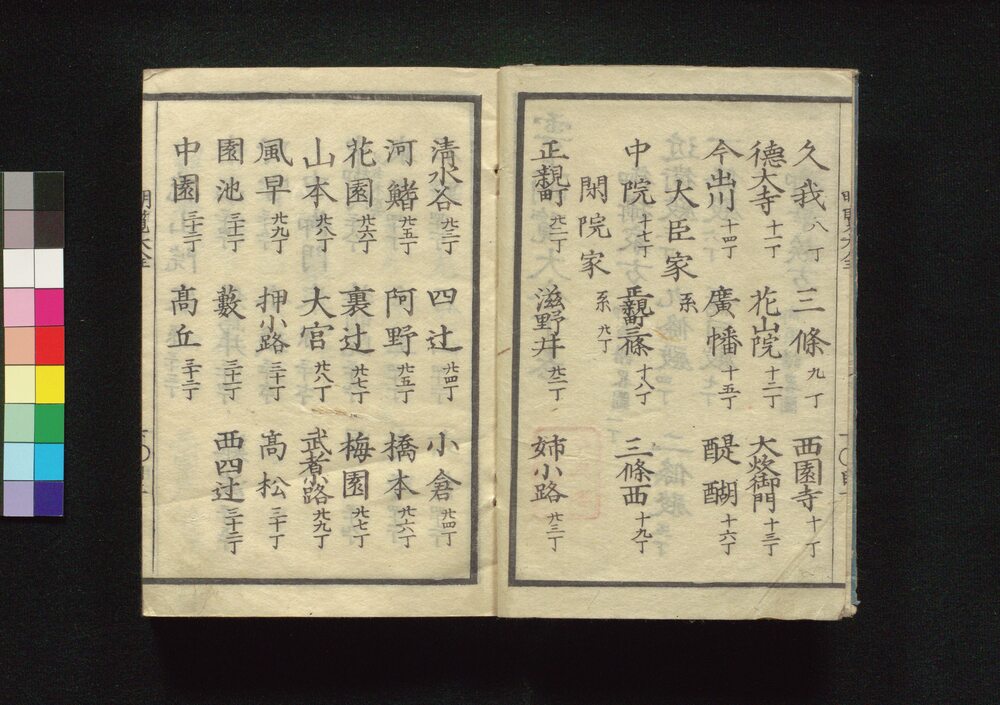 久我 八丁 三條 九丁 西園寺 十丁
德大寺 十一丁 花山院 十二丁 大炊御門 十三丁
今出川 十四丁 廣幡 十五丁 醍醐 十六丁
大臣家 系
中院 十七丁 正親町三條 十八丁 三條西 十九丁
閑院家 系 廿丁
正親町 廿一丁 滋野井 廿二丁 姉小路 廿三丁
清水谷 廿三丁 四辻 廿四丁 小倉 廿四丁
河鰭 廿五丁 阿野 廿五丁 橋本 廿六丁
花園 廿六丁 裏辻 廿七丁 梅園 廿七丁
山本 廿八丁 大宮 廿八丁 武者小路 廿九丁
風早 廿九丁 押小路 三十丁 高松 三十丁
園池 三十一丁 藪 三十一丁 西四辻 三十二丁
中園 三十二丁 髙丘 三十三丁